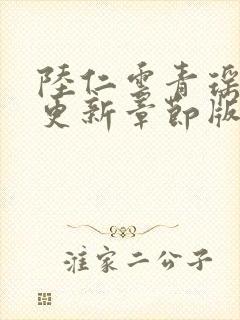 陸仁雲青瑶
更新章節版
淮家二公子